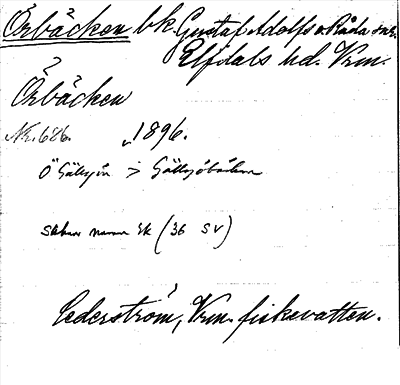 Örbäcken bk. Gustaf Adolfs o. Råda snr.
Elfdals hd. Vrm.
Örbäcken
Nr. 686. 1896.
Ö Gällsjön > Gällsjöbäcken
saknar namn Ek (36 SV)
Cederström, Vrm. fiskevatten.